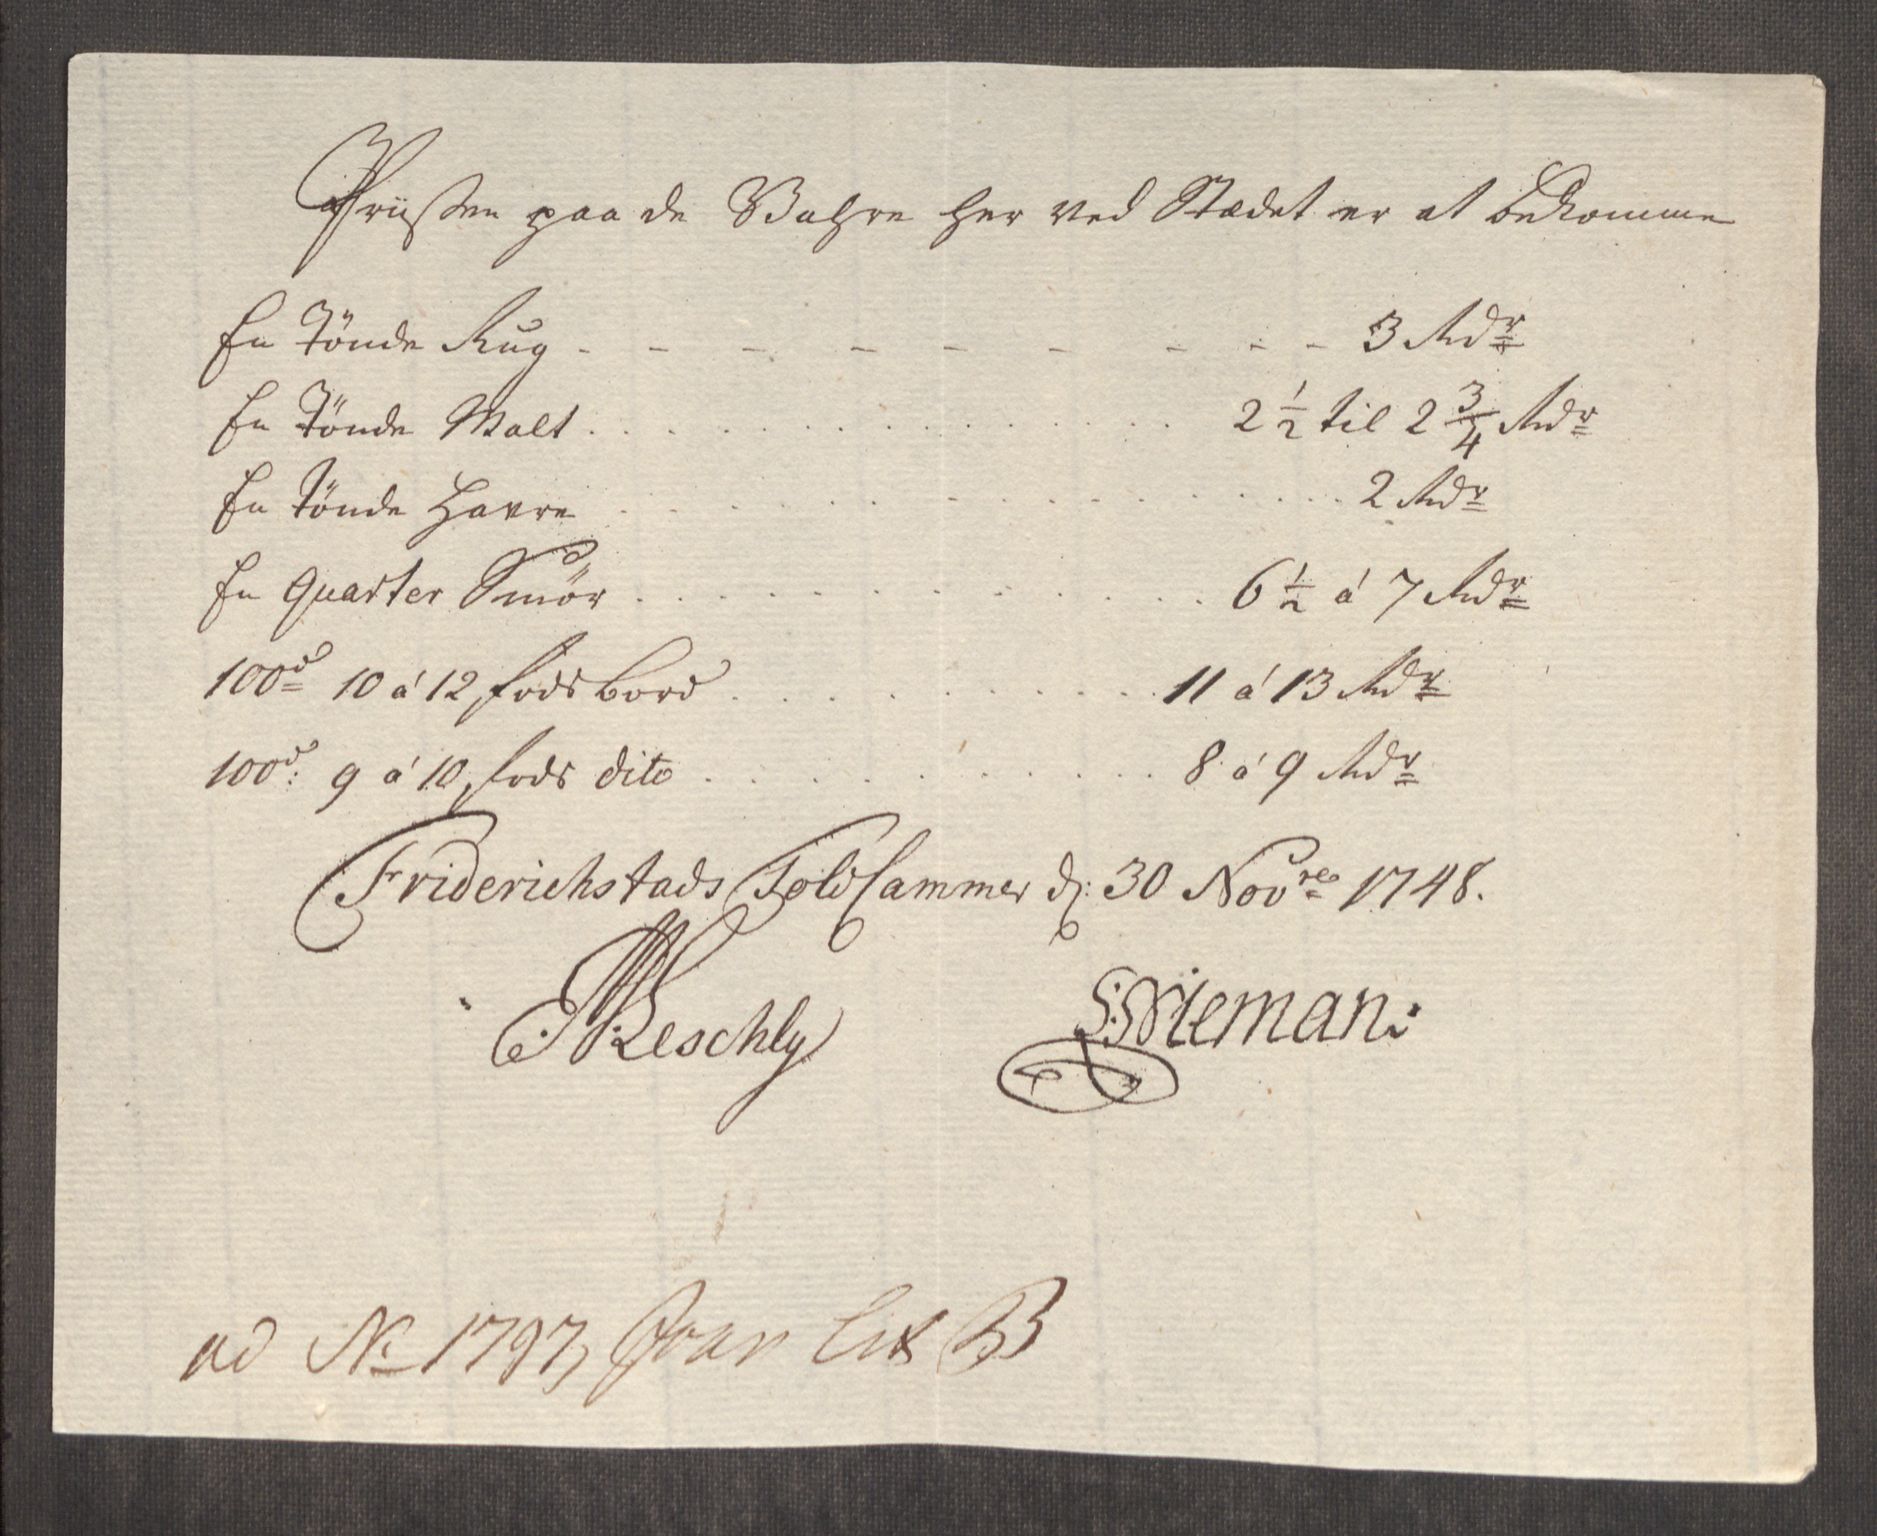 Prüssen paa de Wahre her ved Stædet er at bekomme
En Tönde Rug - - - - - - - - - 3 Rdr
En Tönde Malt . . . . . . . . . . . . . . 2 1/2 til 2 3/4 Rdr
En Tönde Havre . . . . . . . . . . . . . . 2 Rdr
En Quarter Smör . . . . . . . . . . . . 6 1/2 á 7 Rdr
100d 10 á 12 fods bord . . . . . . . . . . 11 á 13 Rdr
100d: 9 á 10 fods dito . . . . . . . . . . 8 á 9 Rdr
Friderichstads Told Cammer d: 30 Novre 1748.
Weschly S: Wieman:
ad No 1797 Lit B